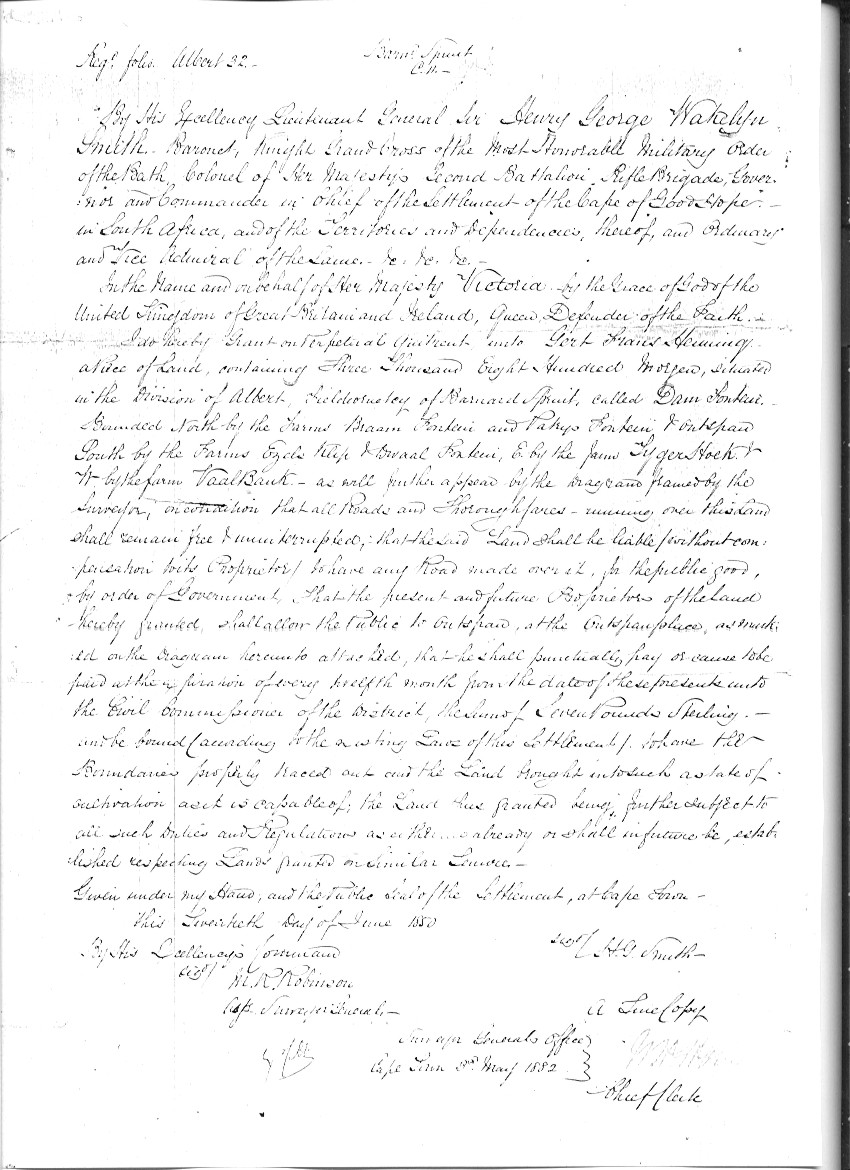 Regd. folio Albert 32.—
Barnd. Spruit
C.N.—
By His Excellency Lieutenant General Sir Henry George Wakelyn
Smith. Baronet, Knight Grand Cross of the Most Honorable Military Order
of the Bath, Colonel of Her Majesty's Second Battalion, Rifle Brigade, Gover-
:nor and Commander in Chief of the Settlement of the Cape of Good Hope.—
in South Africa, and of the Territories and Dependencies, thereof, and Ordinary
and Vice Admiral of the Same.— &c. &c. &c.—
In the Name and on behalf of Her Majesty Victoria by the Grace of God of the
United Kingdom of Great Britain and Ireland, Queen, Defender of the Faith.—
I do hereby Grant on Perpetual Quitrent unto Gert Frans Heming
a Piece of Land, containing Three Thousand Eight Hundred Morgen, situated
in the Division of Albert, Fieldcornetcy of Barnard Spruit, called Dam Fontein.—
Bounded North by the Farms Braam Fontein and Patrys Fontein & Outspan
South by the Farms Ezels Klip & Dwaal Fontein, E. by the farm Tyger Hoek &
W by the farm Vaal Bank — as will further appear by the diagram framed by the
Surveyor; on condition that all Roads and Thoroughfares — running over this Land
shall remain free & uninterrupted; that the said Land shall be liable (without com:
:pensation to its Proprietor) to have any Road made over it, for the public good,
by order of Government, that the present and future Proprietors of the Land
hereby granted, shall allow the Public to Outspan, at the Outspan place, as mark:
:ed on the diagram hereunto attached, that he shall punctually pay or cause to be
paid at the expiration of every twelfth month from the date of these presents unto
the Civil Commissioner of the District, the Sum of Seven Pounds Sterling.—
and be bound (according to the existing Laws of this Settlement). to have the
Boundaries properly traced out and the Land brought into such a state of
cultivation as it is capable of; the Land thus granted being further subject to
all such Duties and Regulations as either are already or shall in future be, estab:
:lished respecting Lands granted on Similar Tenure.—
Given under my Hand, and the Public Seal of the Settlement, at Cape Town —
this Twentieth Day of June 1850
By His Excellency's Command
sigd/ H.G. Smith—
sigd/ M.R. Robinson
Actg. Surveyor General.—
A True Copy
Surveyor General's Office
Cape Town May 1882
Chief Clerk